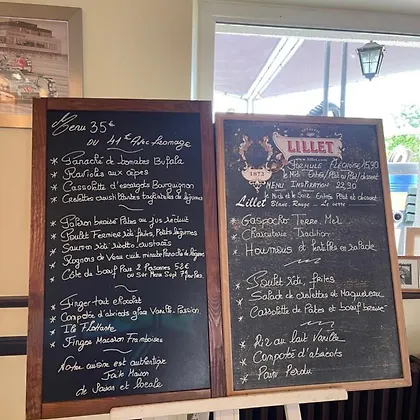 Menu 35€
ou 41€ Avec fromage
* Panaché de tomates Bufala
* Ravioles aux cèpes
* Cassolette d'escargots Bourguignon
* Crevettes croustillantes tagliatelles de légumes
* Paleron braisé Pâtes au jus Réduit
* Poulet Fermier rôti, frites, Petits légumes
* Saumon rôti risotto crustacés
* Rognons de Veau cuits minute Panaché de légumes
* Côte de boeuf Pour 2 Personnes 52€
ou Sur Menu Supt 7€ par Pers
* Finger tout chocolat
* Compotée d'abricots glace Vanille Passion
* Ile Flottante
* Finger Macaron Framboises
Notre cuisine est authentique
Faite Maison
de Saison et locale
LILLET
1872
Lillet
FORMULE 15,90
le Midi - Entrée/Plat ou Plat/dessert
MENU Inspiration 22,90
le Midi et le Soir Entrée Plat et dessert
Blanc, Rouge
* Gaspacho Terre Mer
* Charcuterie Tradition
* Houmous et lentilles en salade
* Poulet rôti, frites
* Salade de crevettes et Maquereau
* Cassolette de Pâtes et boeuf braisé
* Riz au lait Vanille
* Compotée d'abricots
* Pain Perdu